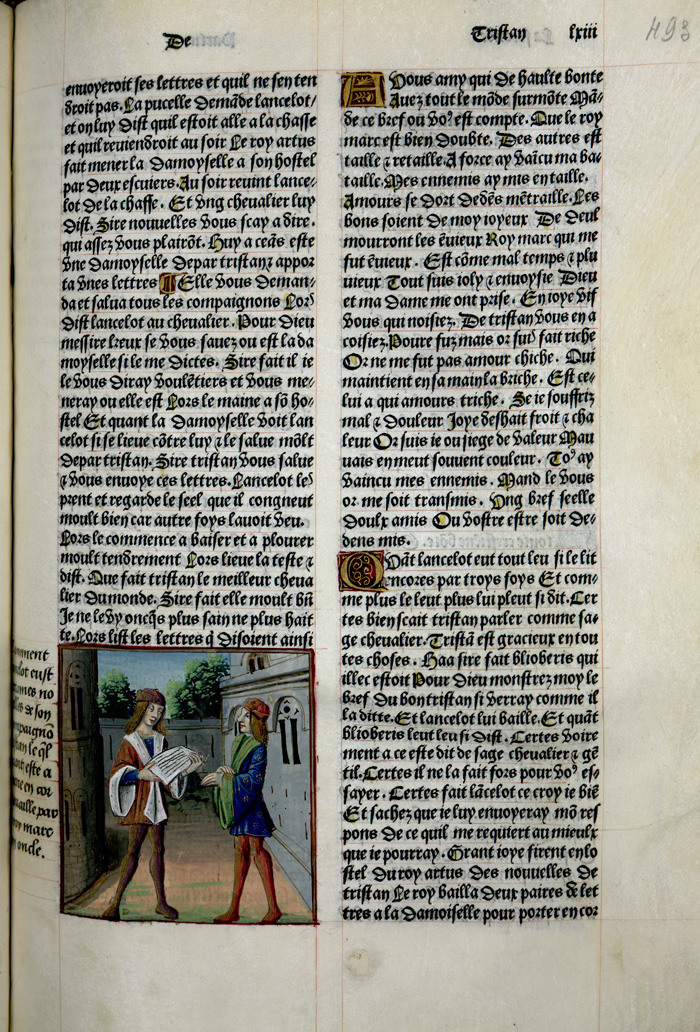 De
Tristan lxiii
493
enuoyeroit ses lettres et quil ne sen ten
droit pas. La pucelle demāde lancelot/
et on luy dist quil estoit alle a la chasse
et quil reuiendroit au soir Le roy artus
fait mener la damoyselle a son hostel
par deux escuiers. Au soir reuint lance⸗
lot de la chasse. Et vng cheualier luy
dist. Sire nouuelles vous scay a dire.
qui assez vous plairōt. Huy a ceās este
vne damoyselle depar tristan ⁊ appor
ta vnes lettres Elle vous deman⸗
da et salua tous les compaignons Lors
dist lancelot au cheualier. Pour dieu
messire lreux se vous sauez ou est la da
moyselle si le me dictes. Sire fait il ie
le vous diray voulētiers et vous me⸗
neray ou elle est Lors le maine a sō ho⸗
stel Et quant la damoyselle voit lan
celot si se lieue cōtre luy ⁊ le salue mōlt
depar tristan. Sire tristan vous salue
⁊ vous enuoye ces lettres. Lancelot les
prent et regarde le seel que il congneut
moult bien car autre foys lauoit veu.
Lors le commence a baiser et a plourer
moult tendrement Lors lieue la teste ⁊
dist. Que fait tristan le meilleur cheua
lier du monde. Sire fait elle moult bn̄
Je ne le vy oncq̄s plus sain ne plus hait
te. Lors list les lettres q̄ disoient ainsi
ment
lot eust
nes no
les de son
paignō
an le q̄l
oit este a
e en cor
aille par
oy marc
oncle.
A Vous amy qui de haulte bonte
Auez tout le mōde surmōte Mā⸗
de ce bref ou voꝰ est compte. Que le roy
marc est bien doubte. Des autres est
taille ⁊ retaille. A force ay vaīcu ma ba⸗
taille. Mes ennemis ay mis en taille.
Amours se dort dedēs mētraille. Les
bons soient de moy ioyeux De deul
mourront les ēuieux Roy marc qui me
fut ēuieux. Est cōme mal temps ⁊ plu
uieux Tout suis ioly ⁊ enuoysie Dieu
et ma dame me ont prise. En ioye vif
vous qui noisiez. De tristan vous en a
coisiez. Poure fuz mais or suis fait riche
Or ne me fut pas amour chiche. Qui
maintient en sa main la briche. Est ce⸗
lui a qui amours triche. Se ie souffriz
mal ⁊ douleur Joye deshait froit ⁊ cha
leur Or suis ie ou siege de valeur Mau
uais en meut souuent couleur. Toꝰ ay
vaincu mes ennemis. Mand le vous
or me soit transmis. Vng bref seelle
doulx amis Ou vostre estre soit de⸗
dens mis.
Quāt lancelot eut tout leu si le lit
encores par troys foys Et com⸗
me plus le leut plus lui pleut si dit. Cer
tes bien scait tristan parler comme sa⸗
ge cheualier. Tristā est gracieux en tou
tes choses. Haa sire fait blioberis qui
illec estoit Pour dieu monstrez moy le
bref du bon tristan si verray comme il
la ditte. Et lancelot lui baille. Et quāt
blioberis leut leu si dist. Certes voire
ment a ce este dit de sage cheualier ⁊ gē
til. Certes il ne la fait fors pour voꝰ es⸗
sayer. Certes fait lācelot ce croy ie biē
Et sachez que ie luy enuoyeray mō res
pons de ce quil me requiert au mieulx
que ie pourray. Grant ioye firent en lo
stel du roy artus des nouuelles de
tristan Le roy bailla deux paires de let
tres a la damoiselle pour porter en cor